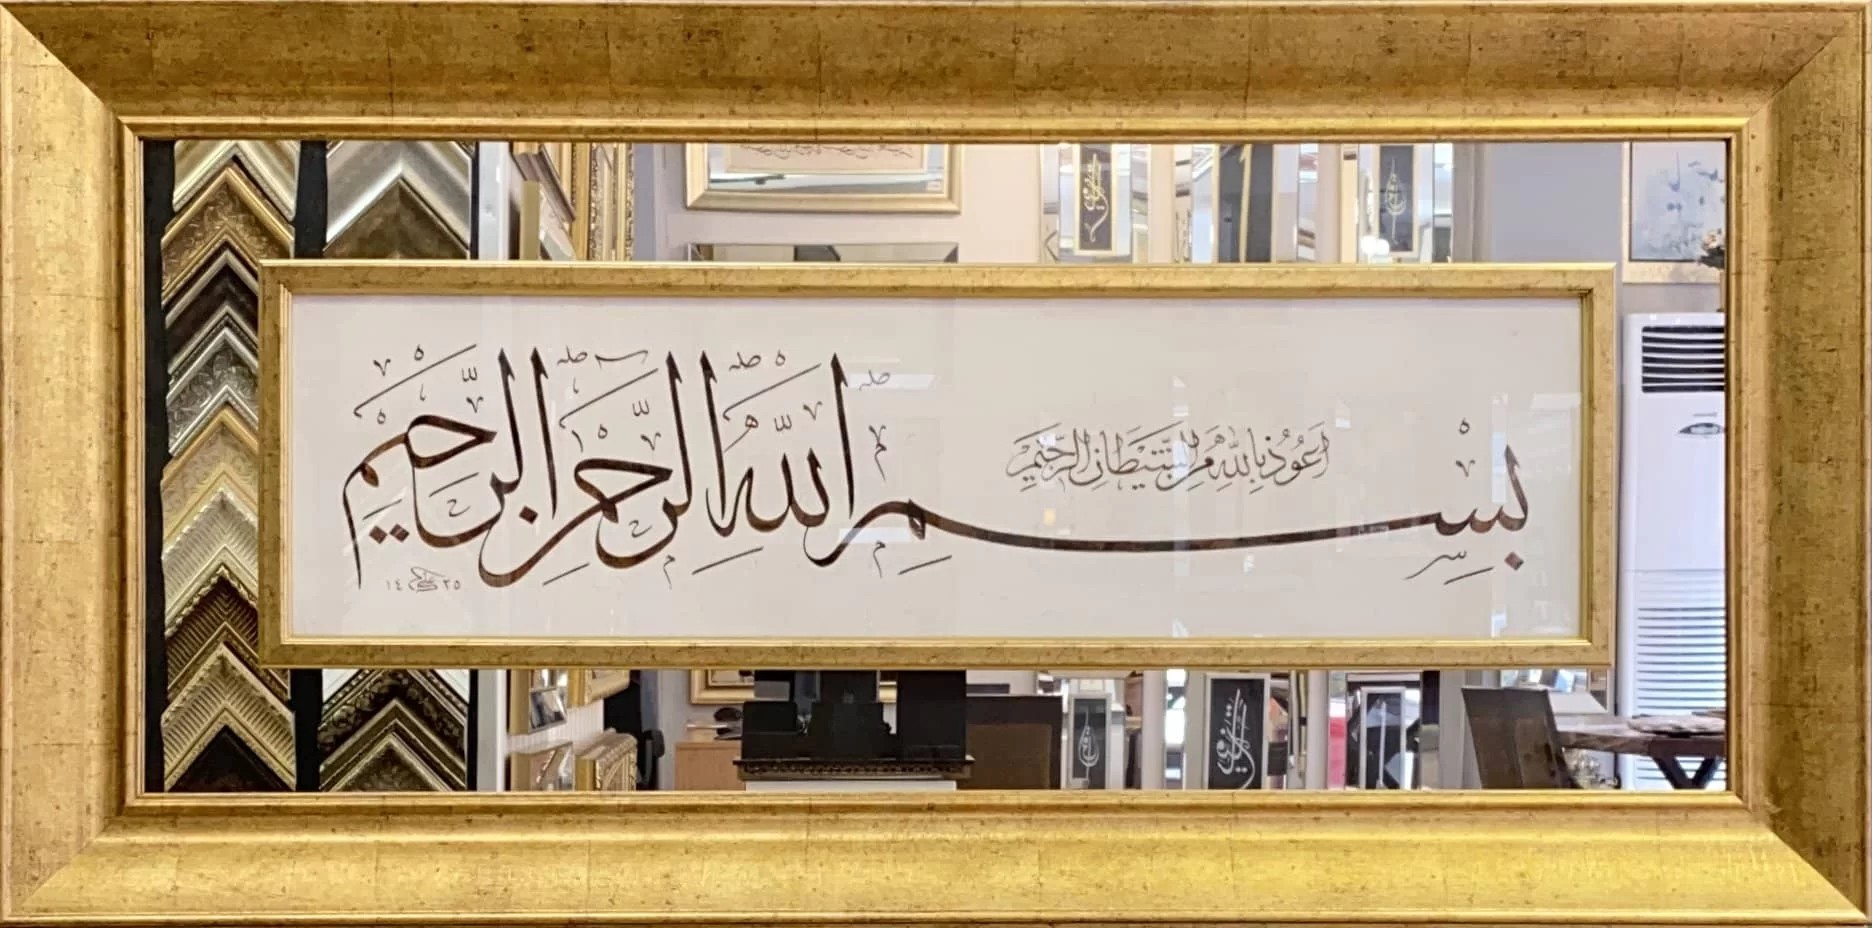 أَعُوذُ بِاللّٰهِ مِنَ الشَّيْطَانِ الرَّجِيمِ
بِسْمِ اللّٰهِ الرَّحْمٰنِ الرَّحِيمِ
١٤٢٥